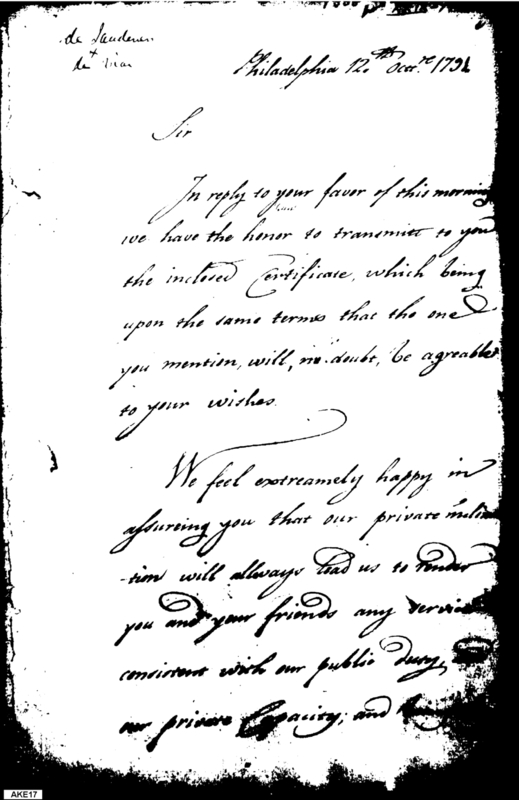 de Jaudenes
&
de Viar
Philadelphia 12th Octre. 1791
Sir
In reply to your favor of this morning
we have the honor to transmitt to you
the inclosed Certificate, which being
upon the same terms that the one
you mention, will, no doubt, be agreable
to your wishes.
We feel extreamely happy in
assureing you that our private inclina
-tion will allways lead us to render
you and your friends any service
consistent with our public duty,
our private Capacity; and
AKE17